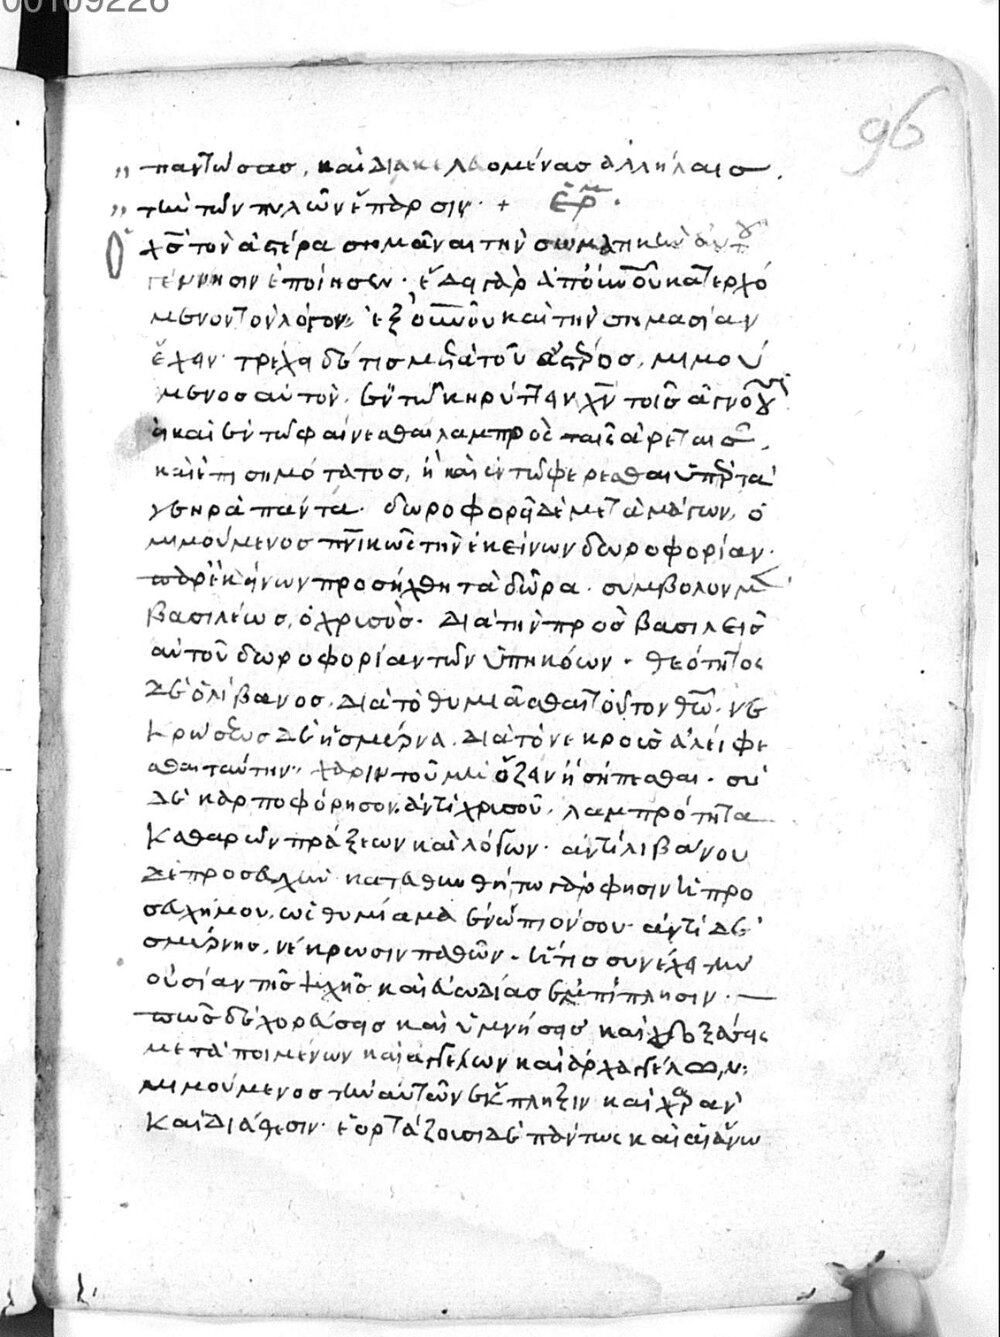 00109226
96
παντώσας, καὶ διακελευομένας ἀλλήλαις
τὴν τῶν πυλῶν ἔπαρσιν · + ἑρμ ·
Ὁ χς τὸν ἀστέρα σημᾶναι τὴν σωματικὴν αὐτοῦ
γέννησιν ἐποίησεν · ἔδει γὰρ ἀπὸ οὐνοῦ κατερχό
μενον τὸν λόγον, ἐξ οὐνοῦ καὶ τὴν σημασίαν
ἔχειν · τρέχει δέ τις μετὰ τοῦ ἀστέρος, μιμού
μενος αὐτὸν, ἐν τῷ κηρύττειν χν τοῖς ἀγνοοῦσι
ἢ καὶ ἐν τῷ φαίνεσθαι λαμπρὸς ταῖς ἀρεταῖς,
καὶ ἐπισημότατος, ἢ καὶ ἐν τῷ φέρεσθαι ὑπὲρ τὰ
γεηρὰ πάντα · δωροφορεῖ δὲ μετὰ μάγων, ὁ
μιμούμενος πνικῶς τὴν ἐκείνων δωροφορίαν ·
παρ' ἐκείνων προσήχθη τὰ δῶρα · σύμβολον μὲν
βασιλέως, ὁ χρυσὸς · διὰ τὴν πρὸς βασιλεῖς
αὐτοῦ δωροφορίαν τῶν ὑπηκόων · θεότητος
δὲ ὁ λίβανος, διὰ τὸ θυμιᾶσθαι τοῦτον θῶ · νε
κρώσεως δὲ ἡ σμύρνα, διὰ τὸ νεκροῖς ἀλείφε
σθαι ταύτην, χάριν τοῦ μὴ ὄζειν ἢ σήπεσθαι · σὺ
δὲ καρποφόρησον, ἀντὶ χρυσοῦ, λαμπρότητα
καθαρῶν πράξεων καὶ λόγων · ἀντὶ λιβάνου
δὲ προσευχὴν κατευθυνθήτω γάρ φησιν ἡ προ
σευχή μου, ὡς θυμίαμα ἐνώπιόν σου · ἀντὶ δὲ
σμύρνης, νέκρωσιν παθῶν · ἥτις συνέχει τὴν
οὐσίαν τῆς ψυχῆς καὶ εὐωδίας ἐμπίπλησιν ·
πῶς δὲ χορεύσεις καὶ ὑμνήσεις καὶ δοξάσεις
μετὰ ποιμένων καὶ ἀγγέλων καὶ ἀρχαγγέλων;
μιμούμενος τὴν αὐτῶν ἔκπληξιν καὶ χαρὰν
καὶ διάθεσιν · ἑορτάζουσι δὲ πάντως καὶ αἱ ἄνω